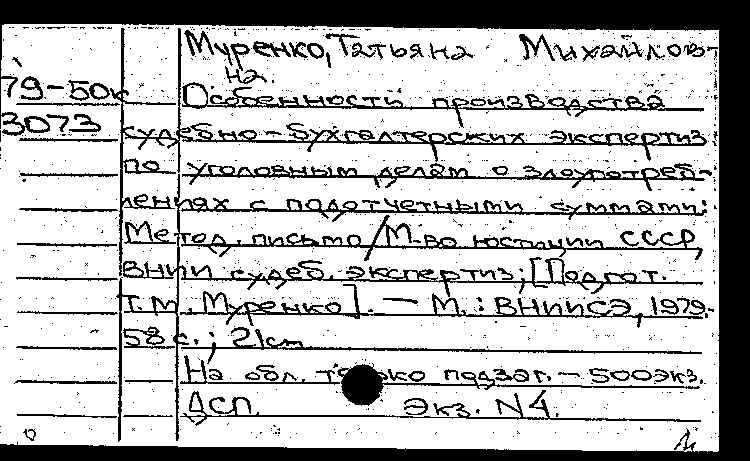 Муренко, Татьяна Михайлов-
на.
79-50к
Особенности производства
3073
судебно-бухгалтерских экспертиз
по уголовным делам о злоупотреб-
лениях с подотчетными суммами:
Метод. письмо/М-во юстиции СССР,
ВНИИ судеб. экспертиз; [Подгот.
Т.М. Муренко]. — М.: ВНИИСЭ, 1979.-
58 с.; 21см
На обл. только подзаг. — 500экз.
ДСП. Экз. N4.